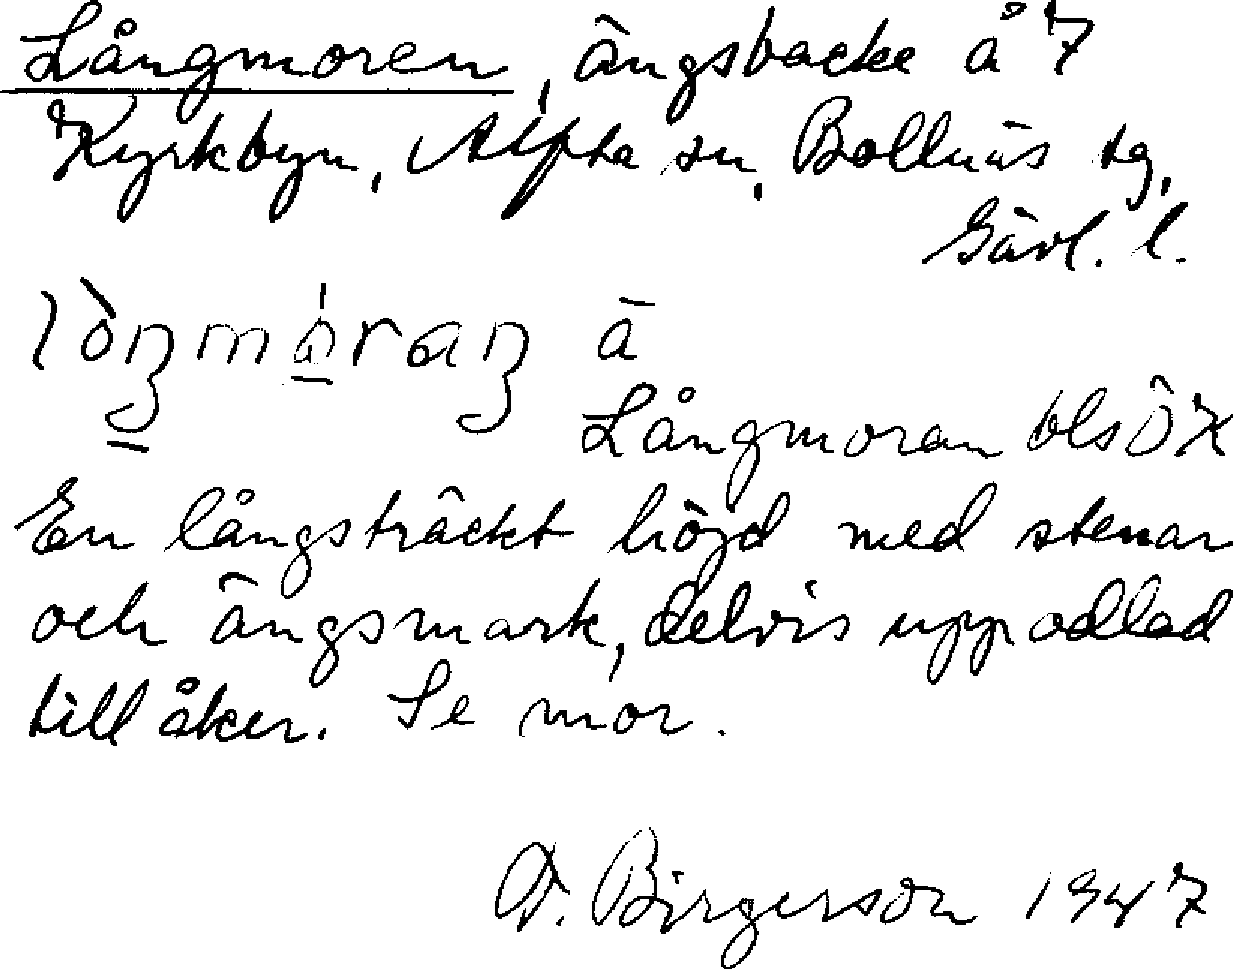 Långmoren, ängsbacke å 7
Kyrkbyn, Alfta sn, Bollnäs tg,
Gävl. l.
lòŋmóraŋ ä
Långmoran bls ÖK
En långsträckt höjd med stenar
och ängsmark, delvis uppodlad
till åker. Se mor.
D. Birgerson 1947